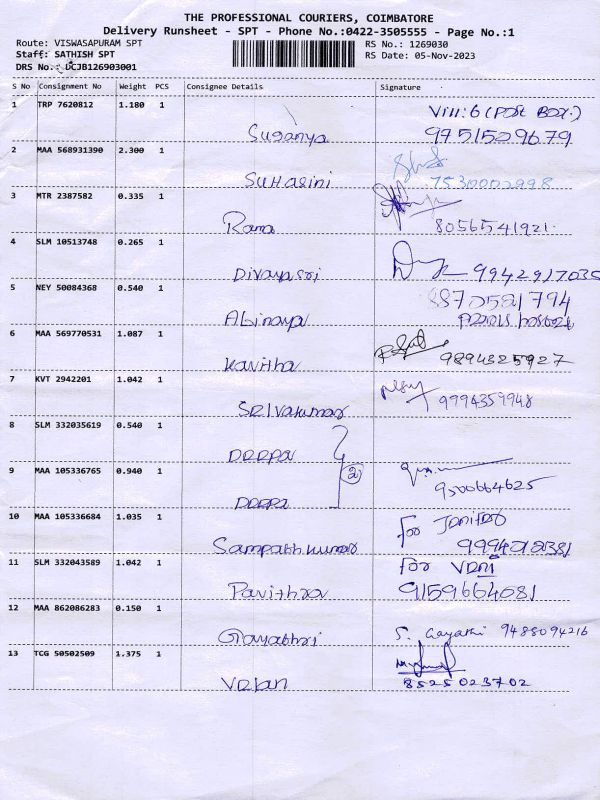 THE PROFESSIONAL COURIERS, COIMBATORE
Delivery Runsheet - SPT - Phone No.:0422-3505555 - Page No.:1
Route: VISWASAPURAM SPT
RS No.: 1269030
Staff: SATHISH SPT
RS Date: 05-Nov-2023
DRS No.: DCJB126903001
S No Consignment No Weight PCS Consignee Details Signature
1 TRP 7620812 1.180 1
Suganya 9751529679
2 MAA 568931390 2.300 1
Suhasini 7530002998
3 MTR 2387582 0.335 1
Rama 8056541921
4 SLM 10513748 0.265 1
Divayasri 9942917035
5 NEY 50084368 0.540 1
Abinaya 8870521794
6 MAA 569770531 1.087 1
Kavitha 9894325927
7 KVT 2942201 1.042 1
Srivakumar 9994359948
8 SLM 332035619 0.540 1
Deepa
9 MAA 105336765 0.940 1
Deepa 2 9500664625
10 MAA 105336684 1.035 1
for
Sampath kumar
11 SLM 332043589 1.042 1
for Vani
Pavithra 9159664081
12 MAA 862086283 0.150 1
Gayathri S. Gayathri 9488094216
13 TCG 50502509 1.375 1
8525023702